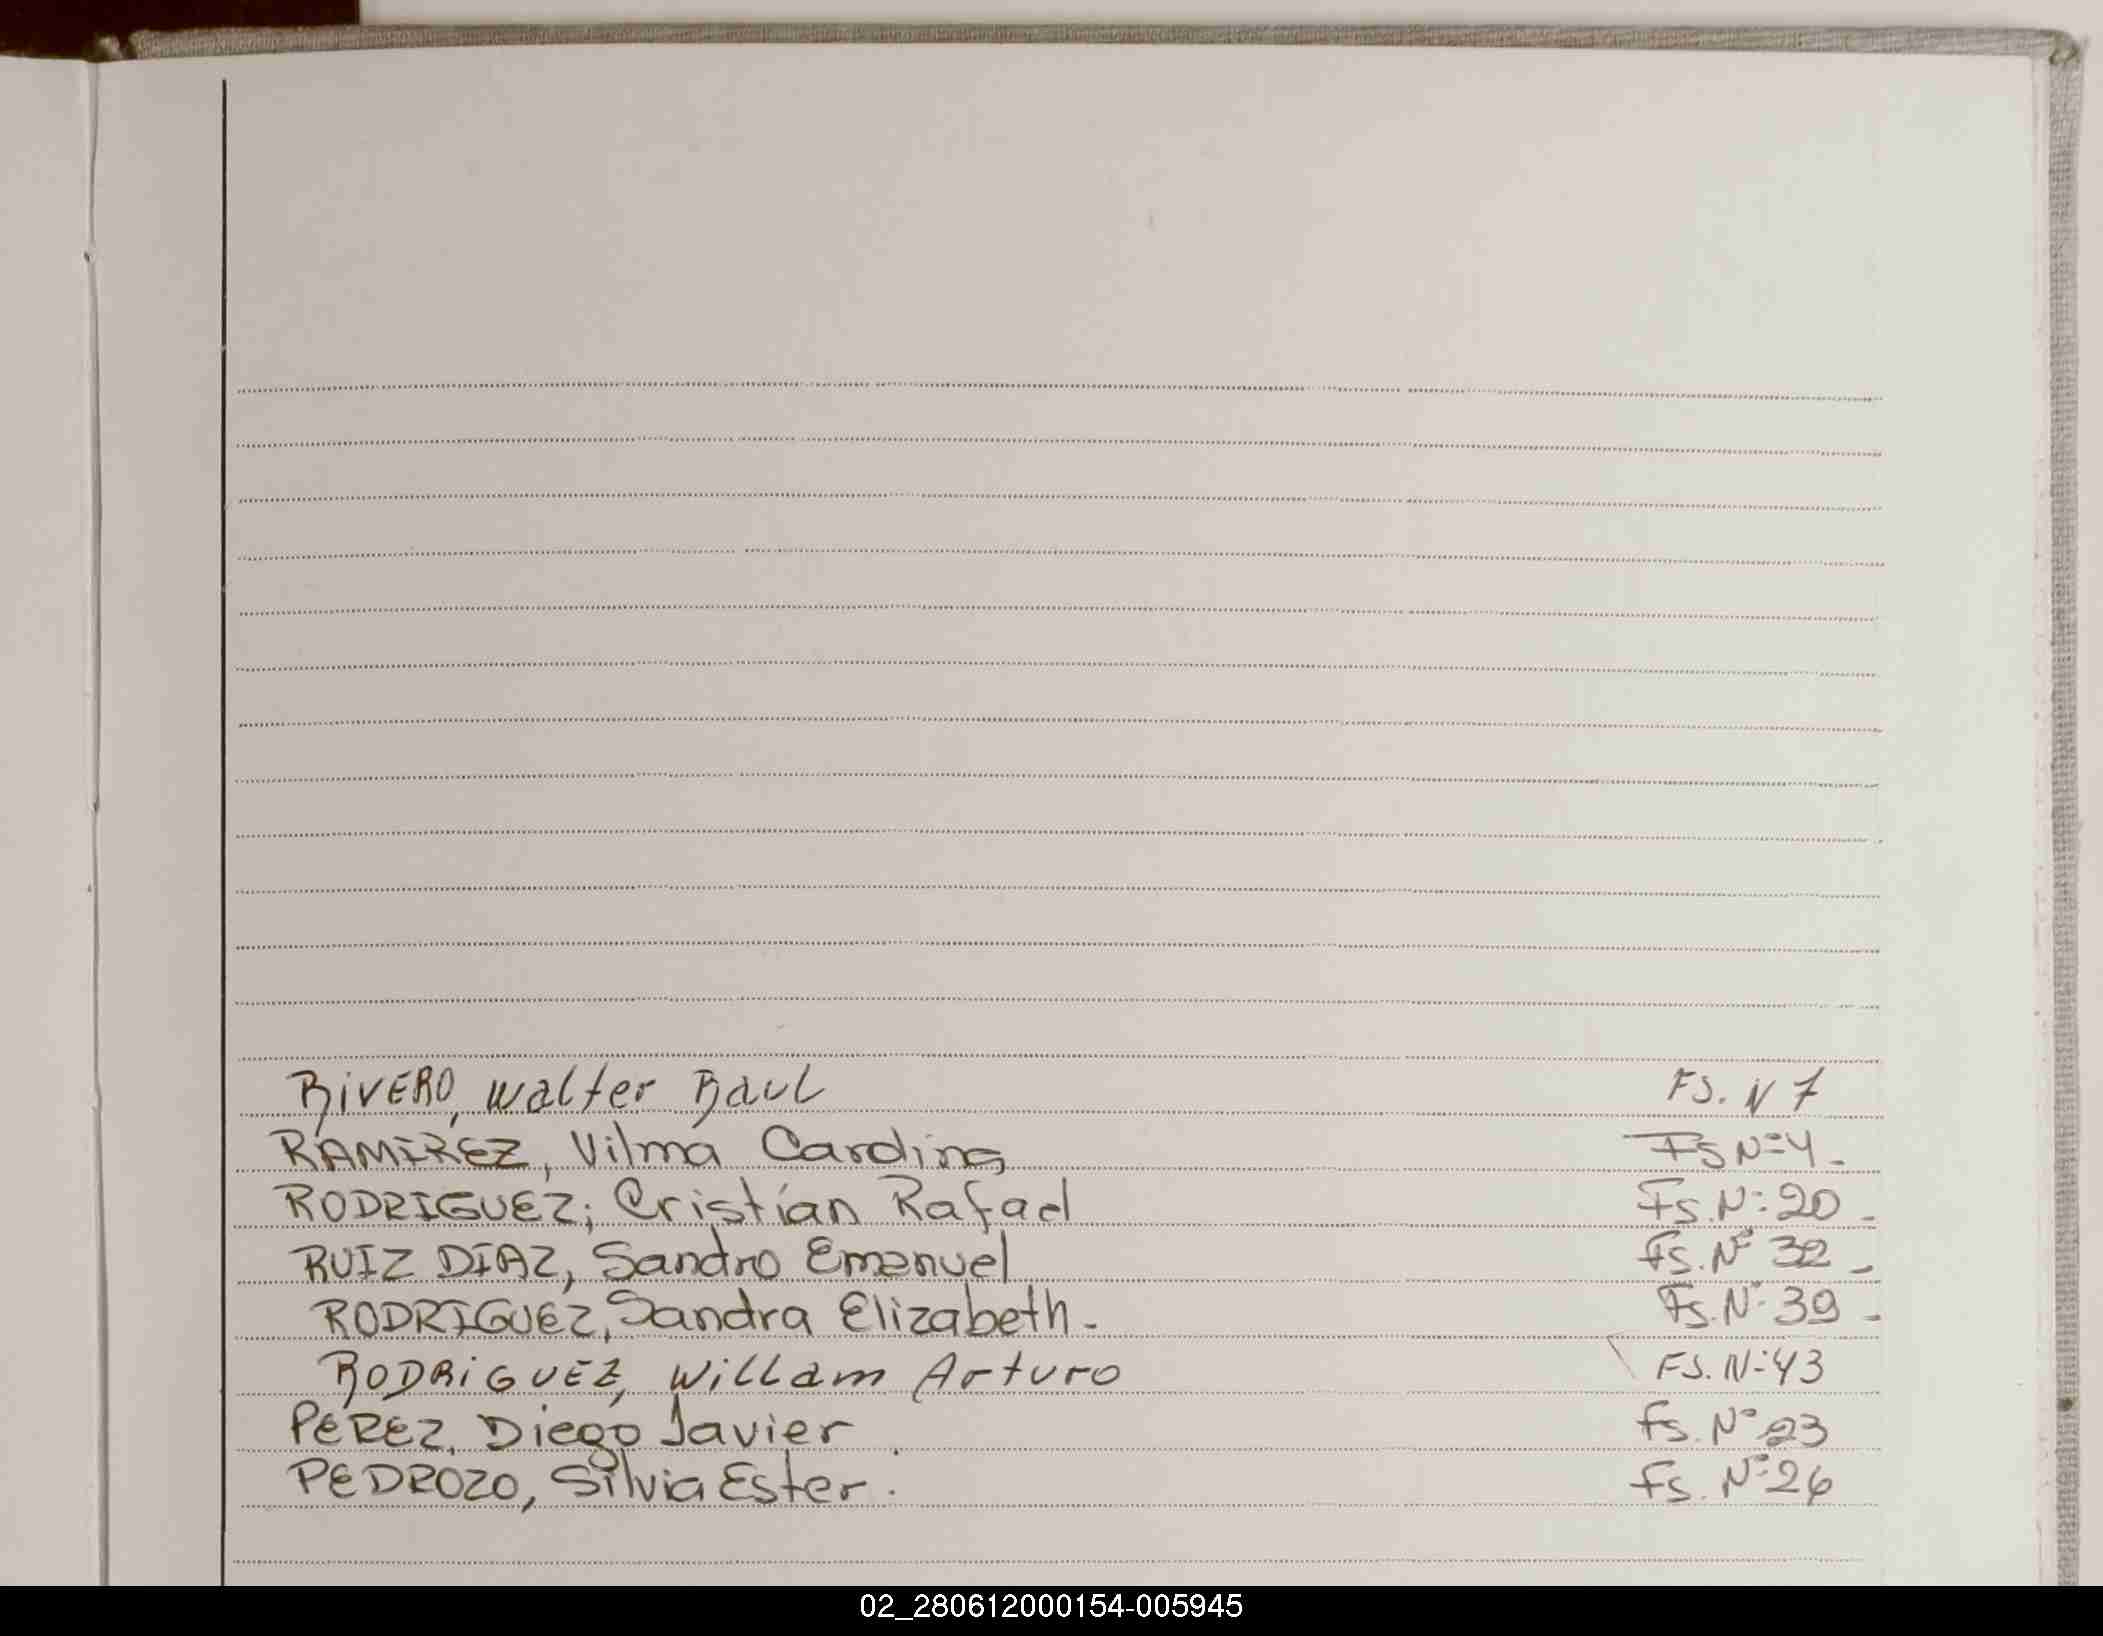 RIVERO, Walter Raul FS. N 7
RAMIREZ, Vilma Cardina FS Nº 4 -
RODRIGUEZ; Cristian Rafael Fs. Nº 20 -
RUIZ DIAZ, Sandro Emanuel Fs. Nº 32 -
RODRIGUEZ, Sandra Elizabeth - Fs. Nº 39 -
RODRiGUEZ, Willam Arturo FS. Nº 43
PEREZ, Diego Javier . Fs. Nº 23
PEDROZO, Silvia Ester . Fs. Nº 26
02_280612000154-005945